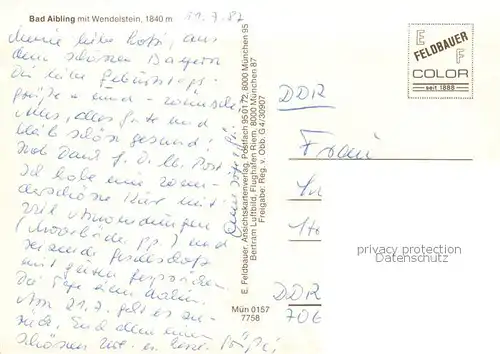 Bad Aibling mit Wendelstein, 1840 m
11.7.87
Meine liebe Rosi, aus
dem schönen Bayern
Dir liebe Geburtstags-
grüße und wünsche
alles, alles Gute und
bleib schön gesund!
Hab Dank f. D. lb. Post.
Ich habe eine wunder-
schöne Kur mit
viel Anwendungen
(Moorbäder pp.) und
reizende Gesellschaft
mit guten Gesprächen.
Die Tage eilen dahin.
Am 21.7. geht es zu-
rück.
schönen
E. Feldbauer, Ansichtskartenverlag, Postfach 950172, 8000 München 95
Bertram Luftbild, Flughafen Riem, 8000 München 87
Freigabe: Reg. v. Obb. G 4/30907
Mün 0157
7758
E F
FELDBAUER
COLOR
seit 1888
DDR
Frau
DDR
706
privacy protection
Datenschutz